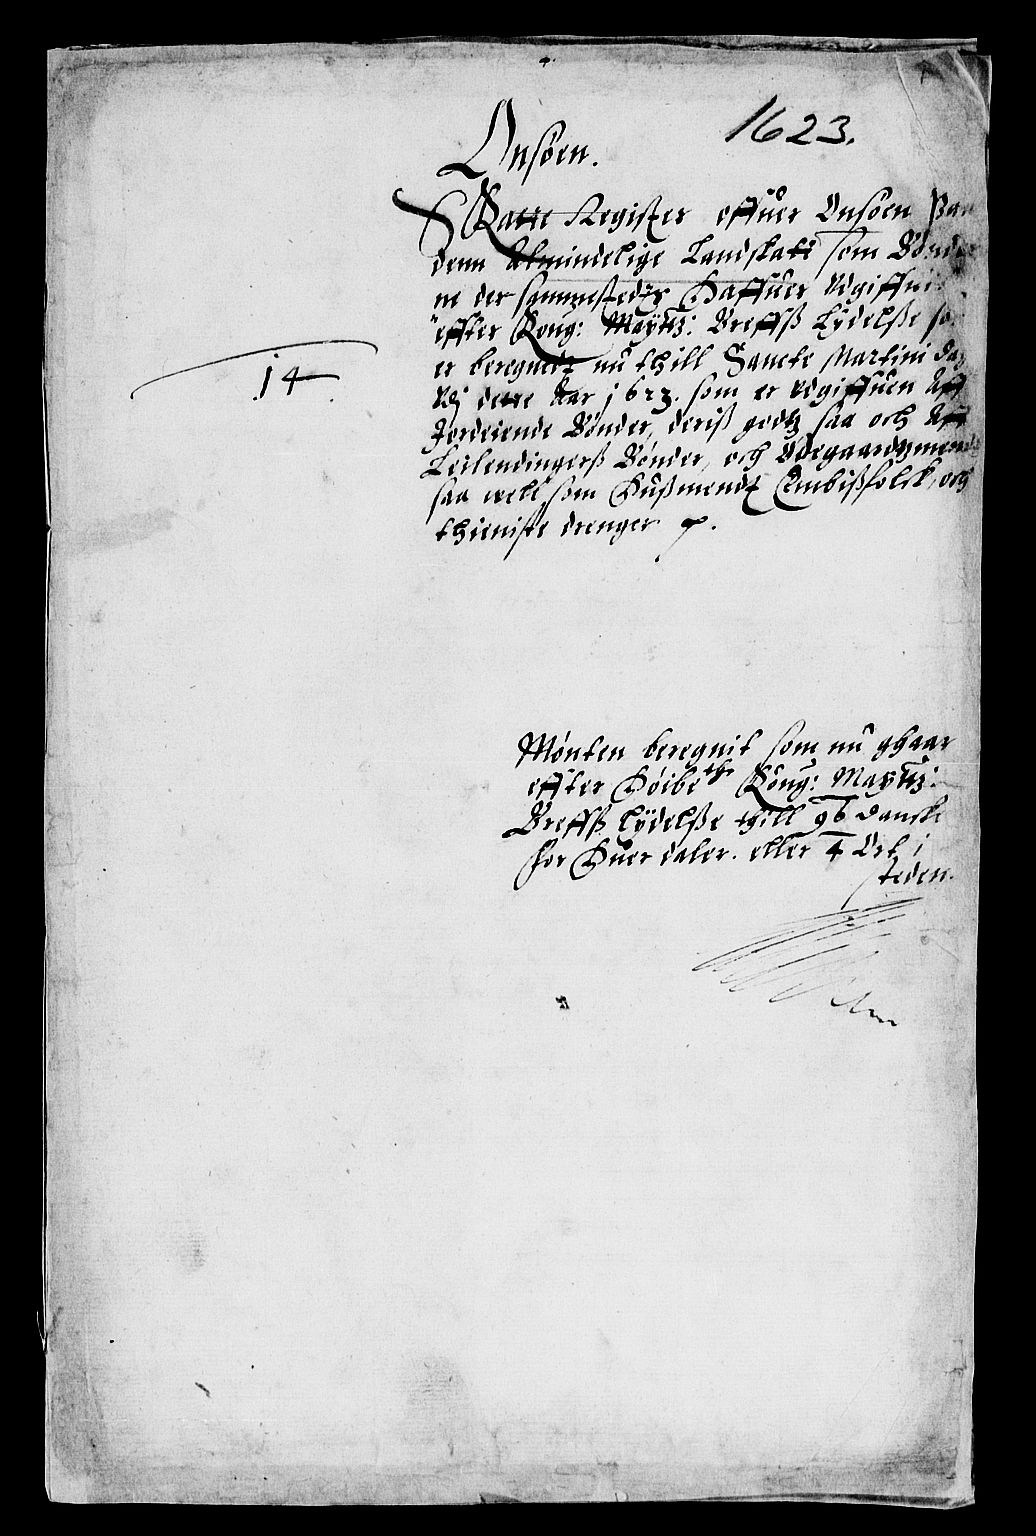 1623.
Onsöen.
Skatte Register offuer Onsöen Paa
denn Almindelige Landskatt som Bönder
ne der sammestedtz Haffuer Udgiffuit
effter Kong: Maÿttz: Breffß Lÿdelße som
er beregnett nu thill Sancte Martini Dag
Udj dette Aar 1623. som er udgiffuen Aff
Jordeiende Bönder, deriß godtz saa och Aff
Leilendingerß Bönder, och Ödegaardtzmend
saa well som Hußmendt Embißfolck, och
thieniste drenger
14
Mönten beregnit som nu ghaar
effter Höibe^te Kong: Maÿttz:
Breffß Lÿdelße thill 96 Danske
for Huer daler. eller 4 Ort i
steden.